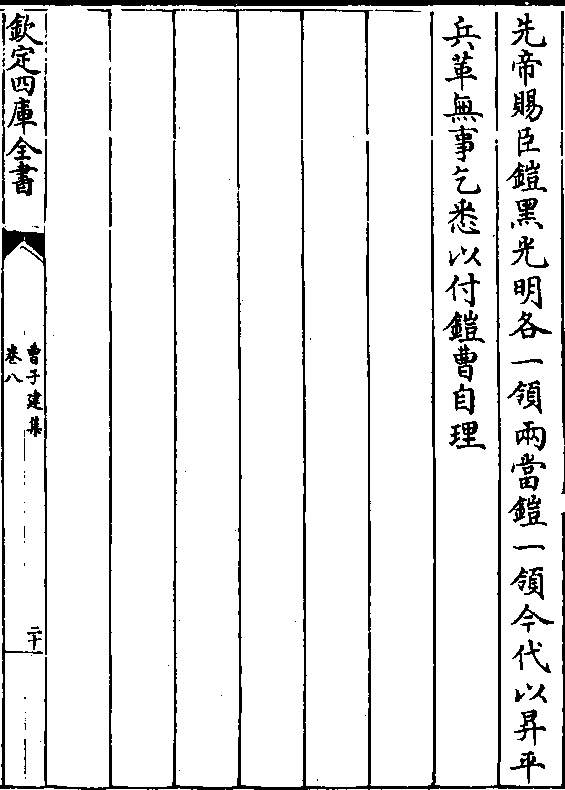 先帝賜臣鎧黑光明各一領兩當鎧一領今代以昇平
兵革無事乞悉以付鎧曹自理
欽定四庫全書
曹子建集
卷八
二十